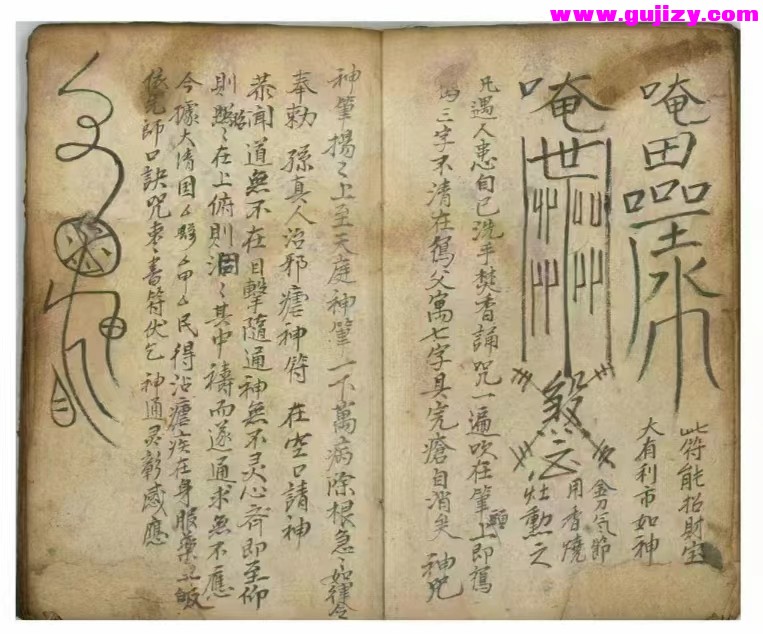 www.gujizy.com
唵田
此符能招財宝
大有利市如神
唵
用香燒
灶勲之
凡遇人患自己洗手焚香誦咒一遍吹在筆上即寫
三字不清在寫父寓七字具完瘡自消矣 神咒
神筆揚〻上至天庭神筆一下萬病除根急〻如律令
奉勅 孫真人治邪瘧神符 在空口請神
恭聞道無不在目擊隨通神無不灵心斉即至仰
則照〻在上俯則洞〻其中禱而遂通求無不應
今據大清国厶縣厶甲厶民得沾瘧疾在身服藥
依先師口訣咒棗書符伏乞 神通灵彰感應